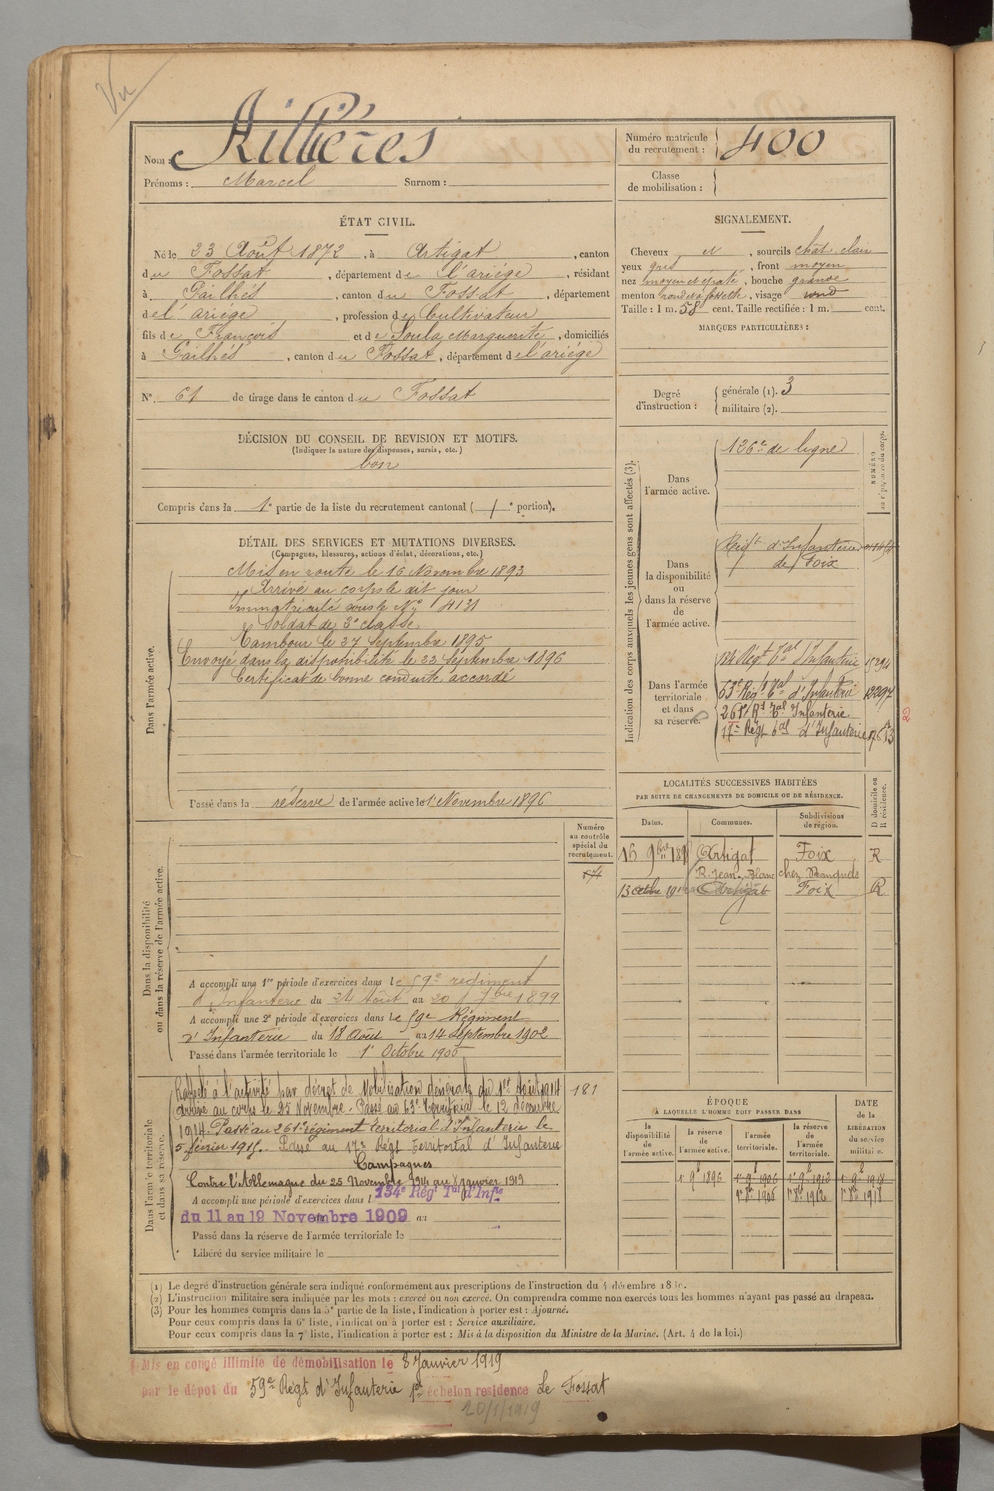 Vu
Nom : Ailhères
Prénoms : Marcel Surnom :
Numéro matricule du recrutement : 400
Classe de mobilisation :
ÉTAT CIVIL.
Né le 23 Août 1872, à Artigat, canton
du Fossat, département de l'ariège, résidant
à Pailhés, canton du Fossat, département
de l'ariège, profession de Cultivateur
fils de François et de Soula Marguerite, domiciliés
à Pailhés, canton du Fossat, département de l'ariège
N° 61 de tirage dans le canton du Fossat
SIGNALEMENT.
Cheveux et, sourcils chât clair
yeux gris, front moyen
nez moyen et épaté, bouche grande
menton rond et à fossette, visage rond
Taille : 1 m. 58 cent. Taille rectifiée : 1 m. cent.
MARQUES PARTICULIÈRES :
Degré d'instruction : générale (1). 3
militaire (2).
DÉCISION DU CONSEIL DE REVISION ET MOTIFS.
(Indiquer la nature des dispenses, sursis, etc.)
bon
Compris dans la 1e partie de la liste du recrutement cantonal ( / e portion).
DÉTAIL DES SERVICES ET MUTATIONS DIVERSES.
(Campagnes, blessures, actions d'éclat, décorations, etc.)
Dans l'armée active.
Mis en route le 16 Novembre 1893
Arrivé au corps le dit jour
Immatriculé sous le N° 4131
Soldat de 2e classe
Tambour le 27 Septembre 1895
Envoyé dans la disponibilité le 22 Septembre 1896
Certificat de bonne conduite accordé
Passé dans la réserve de l'armée active le 1 Novembre 1896
Indication des corps auxquels les jeunes gens sont affectés (3).
NUMÉRO
Dans l'armée active.
126e de ligne
Dans la disponibilité ou dans la réserve de l'armée active.
Régt d'Infanterie
de Foix
Dans l'armée territoriale et dans sa réserve.
134 Régt Tal d'Infanterie
63e Régt Tal d'Infanterie
261e Rt Tal Infanterie
17e Régt Tal d'Infanterie
LOCALITÉS SUCCESSIVES HABITÉES
PAR SUITE DE CHANGEMENTS DE DOMICILE OU DE RÉSIDENCE.
D domicile ou R résidence.
Dates. Communes. Subdivisions de région.
Artigat Foix R
R. Jean Blanc
Artigat Foix R
Dans la disponibilité ou dans la réserve de l'armée active.
Numéro au contrôle spécial du recrutement.
A accompli une 1re période d'exercices dans le 59e régiment
d'Infanterie du 24 Août au 20 7bre 1899
A accompli une 2e période d'exercices dans le 59e Régiment
d'Infanterie du 18 Août au 14 Septembre 1902
Passé dans l'armée territoriale le 1er Octobre 1906
Dans l'armée territoriale et dans sa réserve.
Rappelé à l'activité par décret de Mobilisation Générale du 1er Août 1914 181
Arrivé au corps le 25 Novembre. Passé au 63e Territorial le 12 décembre
1914. Passé au 261e régiment territorial d'Infanterie le
5 février 1915. Passé au 17e Régt Territorial d'Infanterie
Campagnes
Contre l'Allemagne du 25 Novembre 1914 au 8 janvier 1919
A accompli une période d'exercices dans l 134e Régt Tal d'Infie
du 11 au 19 Novembre 1909 au
Passé dans la réserve de l'armée territoriale le
Libéré du service militaire le
ÉPOQUE
A LAQUELLE L'HOMME DOIT PASSER DANS
DATE de la LIBÉRATION du service militaire.
la disponibilité de l'armée active. la réserve de l'armée active. l'armée territoriale. la réserve de l'armée territoriale.
(1) Le degré d'instruction générale sera indiqué conformément aux prescriptions de l'instruction du 4 décembre
(2) L'instruction militaire sera indiquée par les mots : exercé ou non exercé. On comprendra comme non exercés tous les hommes n'ayant pas passé au drapeau.
(3) Pour les hommes compris dans la 5e partie de la liste, l'indication à porter est : Ajourné.
Pour ceux compris dans la 6e liste, l'indication à porter est : Service auxiliaire.
Pour ceux compris dans la 7e liste, l'indication à porter est : Mis à la disposition du Ministre de la Marine. (Art. 4 de la loi.)
Mis en congé illimité de démobilisation le 8 Janvier 1919
par le dépot du 59e Régt d'Infanterie 1er échelon residence Le Fossat
20/1/1919